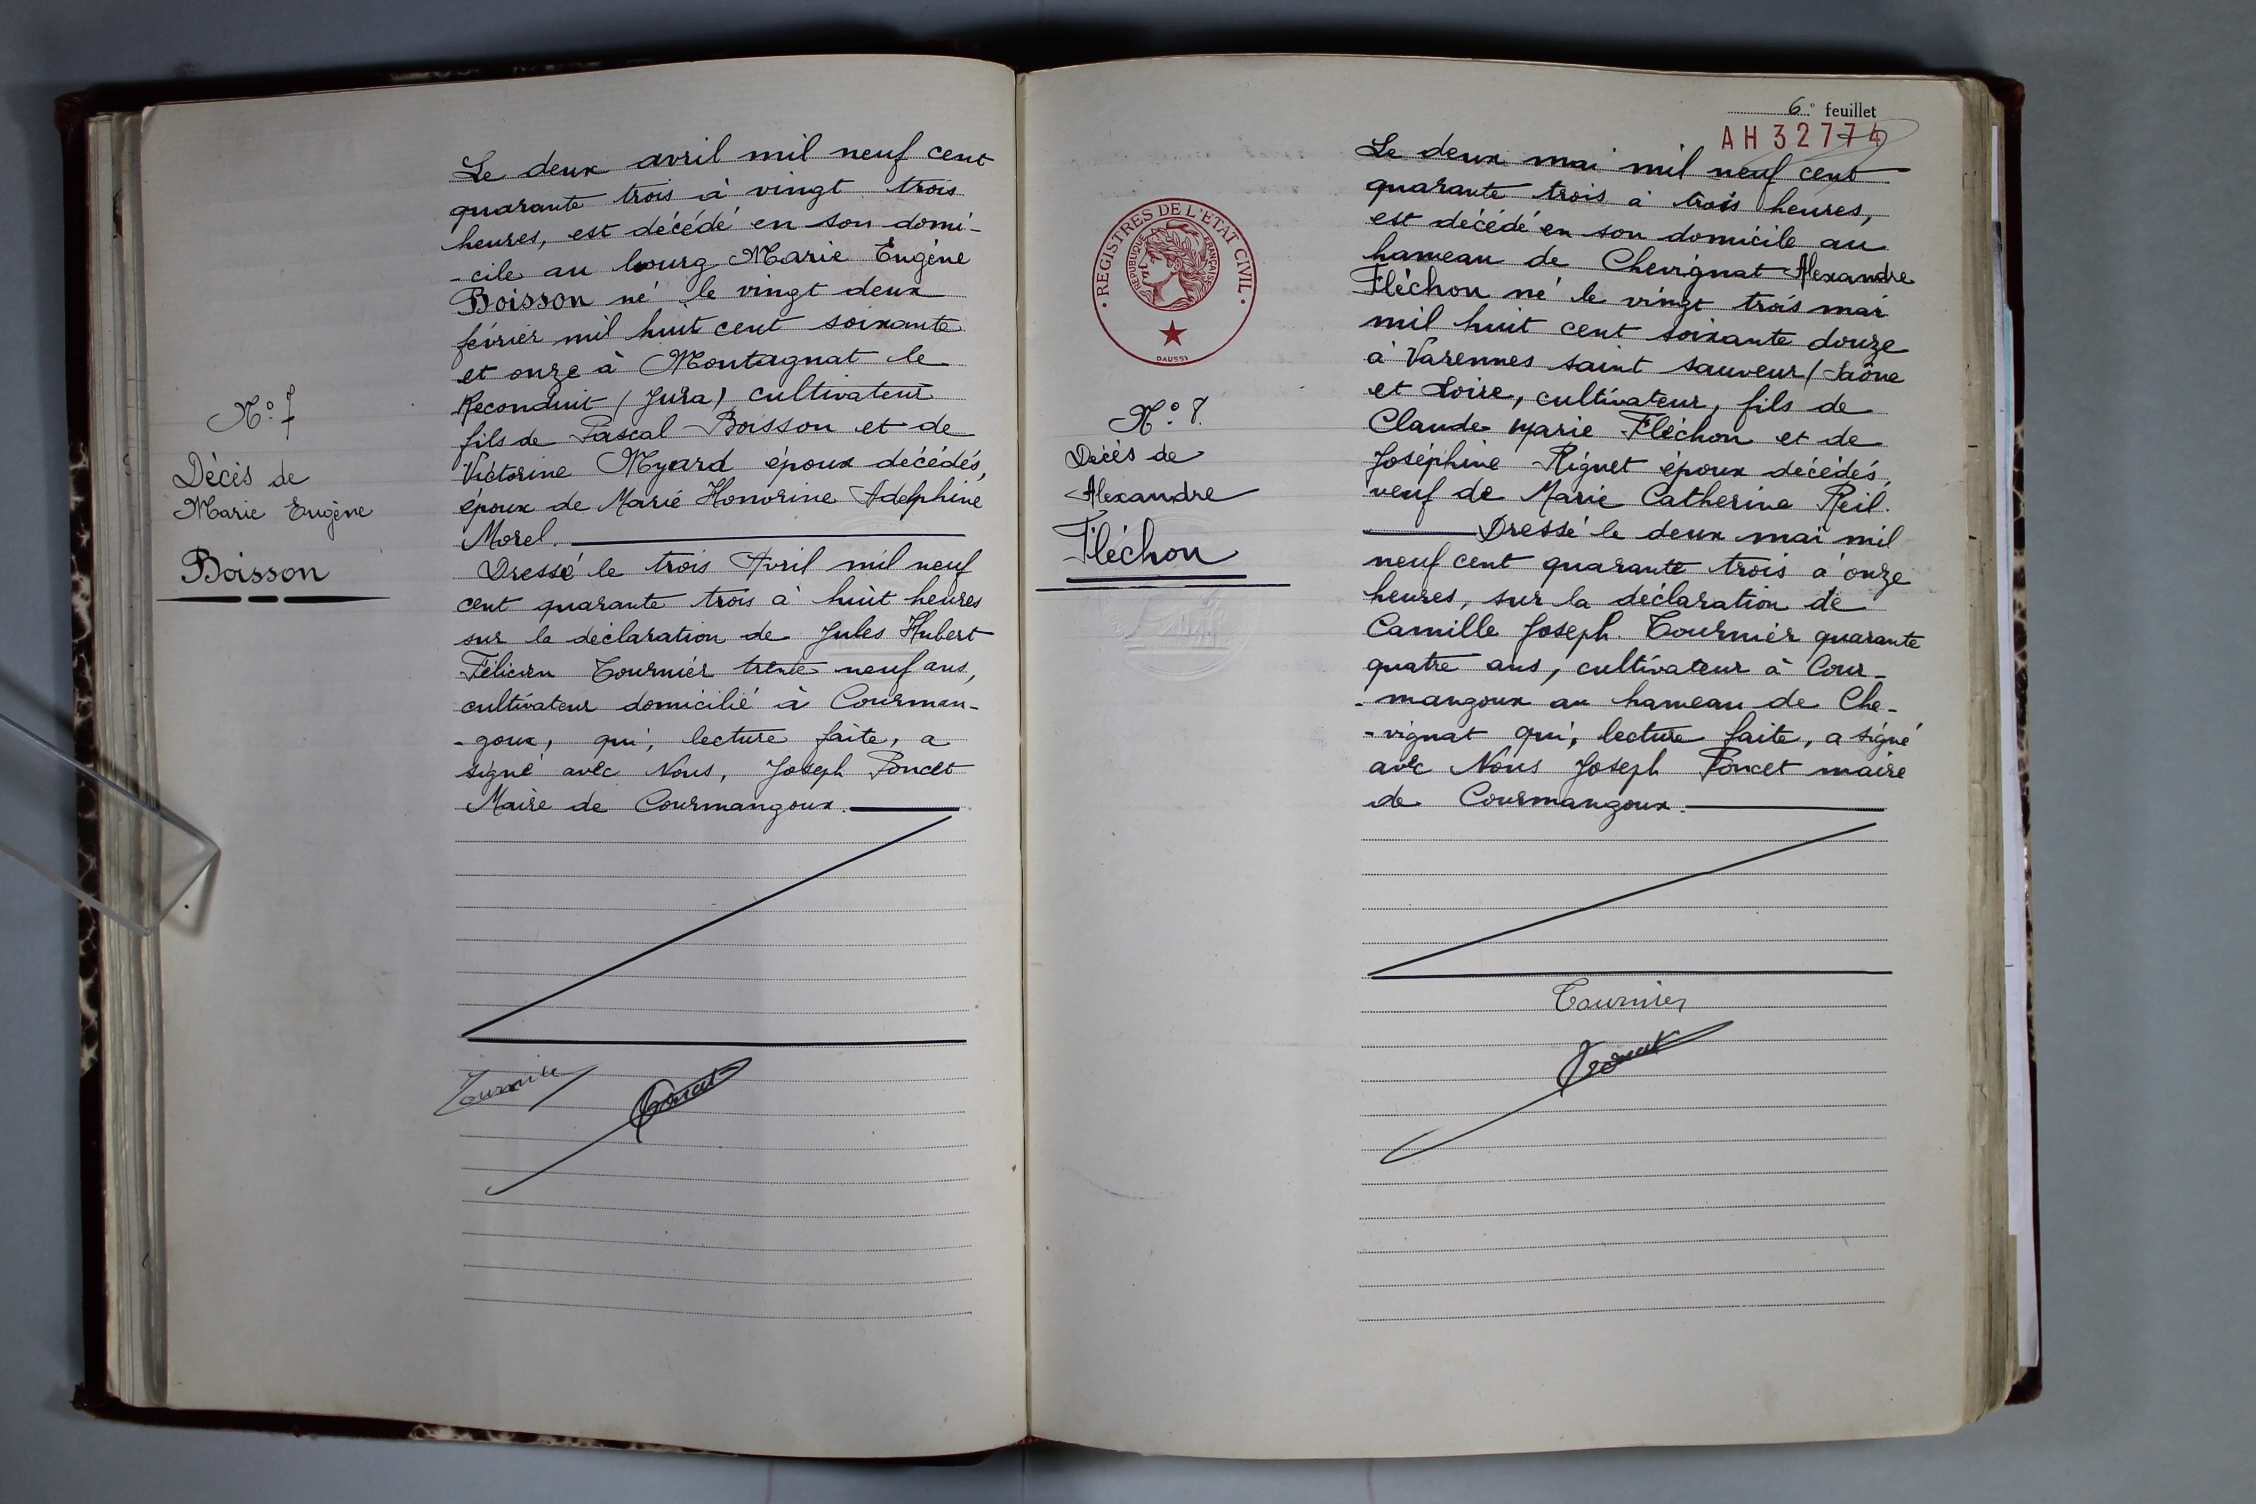 N° 7
Décès de
Marie Eugène
Boisson
Le deux avril mil neuf cent
quarante trois à vingt trois
heures, est décédé en son domi-
-cile au bourg Marie Eugène
Boisson né le vingt deux
février mil huit cent soixante
et onze à Montagnat le
Reconduit (Jura) cultivateur
fils de Pascal Boisson et de
Victorine Myard époux décédés,
époux de Marie Honorine Adelphine
Morel.
Dressé le trois Avril mil neuf
cent quarante trois à huit heures
sur la déclaration de Jules Hubert
Félicien Tournier trente neuf ans,
cultivateur domicilié à Courman-
-goux, qui, lecture faite, a
signé avec Nous, Joseph Poncet
Maire de Courmangoux.
Tournier
Poncet
6e feuillet
AH 32774
REGISTRES DE L'ETAT CIVIL
REPUBLIQUE FRANÇAISE
DAUSSY
N° 8.
Décès de
Alexandre
Fléchon
Le deux mai mil neuf cent
quarante trois à trois heures,
est décédé en son domicile au
hameau de Chevignat Alexandre
Fléchon né le vingt trois mai
mil huit cent soixante douze
à Varennes saint sauveur (Saône
et Loire, cultivateur, fils de
Claude marie Fléchon et de
Joséphine Riguet époux décédés,
veuf de Marie Catherine Reil.
Dressé le deux mai mil
neuf cent quarante trois à onze
heures, sur la déclaration de
Camille Joseph Tournier quarante
quatre ans, cultivateur à Cour-
-mangoux au hameau de Che-
-vignat qui, lecture faite, a signé
avec Nous Joseph Poncet maire
de Courmangoux.
Tournier
Poncet